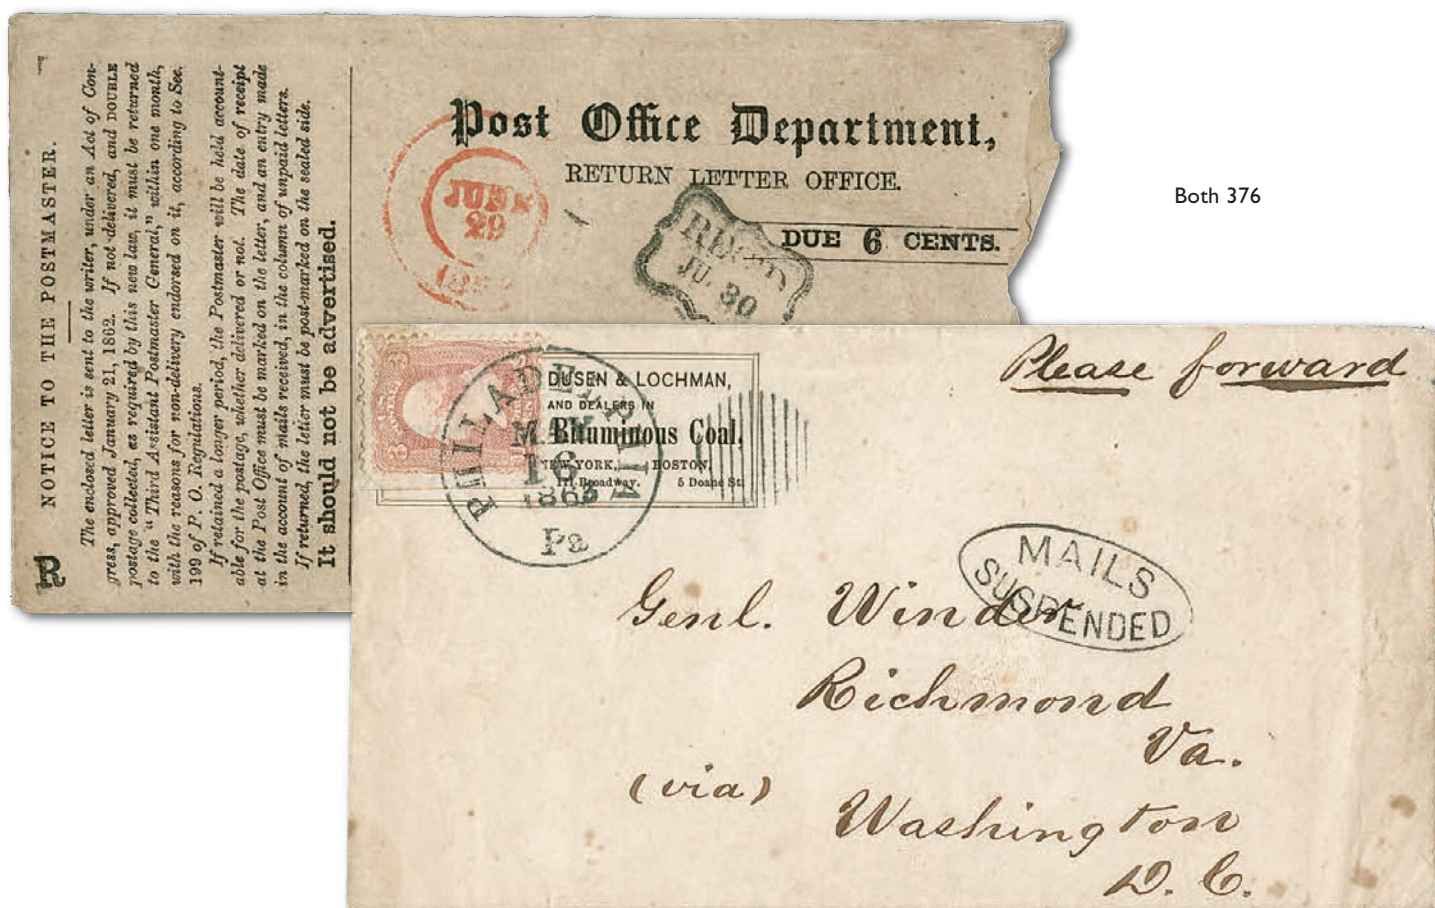 NOTICE TO THE POSTMASTER.
The enclosed letter is sent to the writer, under an Act of Con-
gress, approved January 21, 1862. If not delivered, and DOUBLE
postage collected, as required by this new law, it must be returned
to the "Third Assistant Postmaster General," within one month,
with the reasons for non-delivery endorsed on it, according to Sec.
199 of P. O. Regulations.
If retained a longer period, the Postmaster will be held account-
able for the postage, whether delivered or not. The date of receipt
at the Post Office must be marked on the letter, and an entry made
in the account of mails received, in the column of unpaid letters.
If returned, the letter must be post-marked on the sealed side.
It should not be advertised.
R
Post Office Department,
RETURN LETTER OFFICE.
DUE 6 CENTS.
JUN
29
REC'D
JU. 30
Both 376
Please forward
DUSEN & LOCHMAN,
AND DEALERS IN
Bituminous Coal,
NEW YORK, BOSTON,
111 Broadway. 5 Doane St.
PHILADELPHIA
MAY
16
1863
Pa
MAILS
SUSPENDED
Genl. Winder
Richmond
Va.
(via)
Washington
D. C.